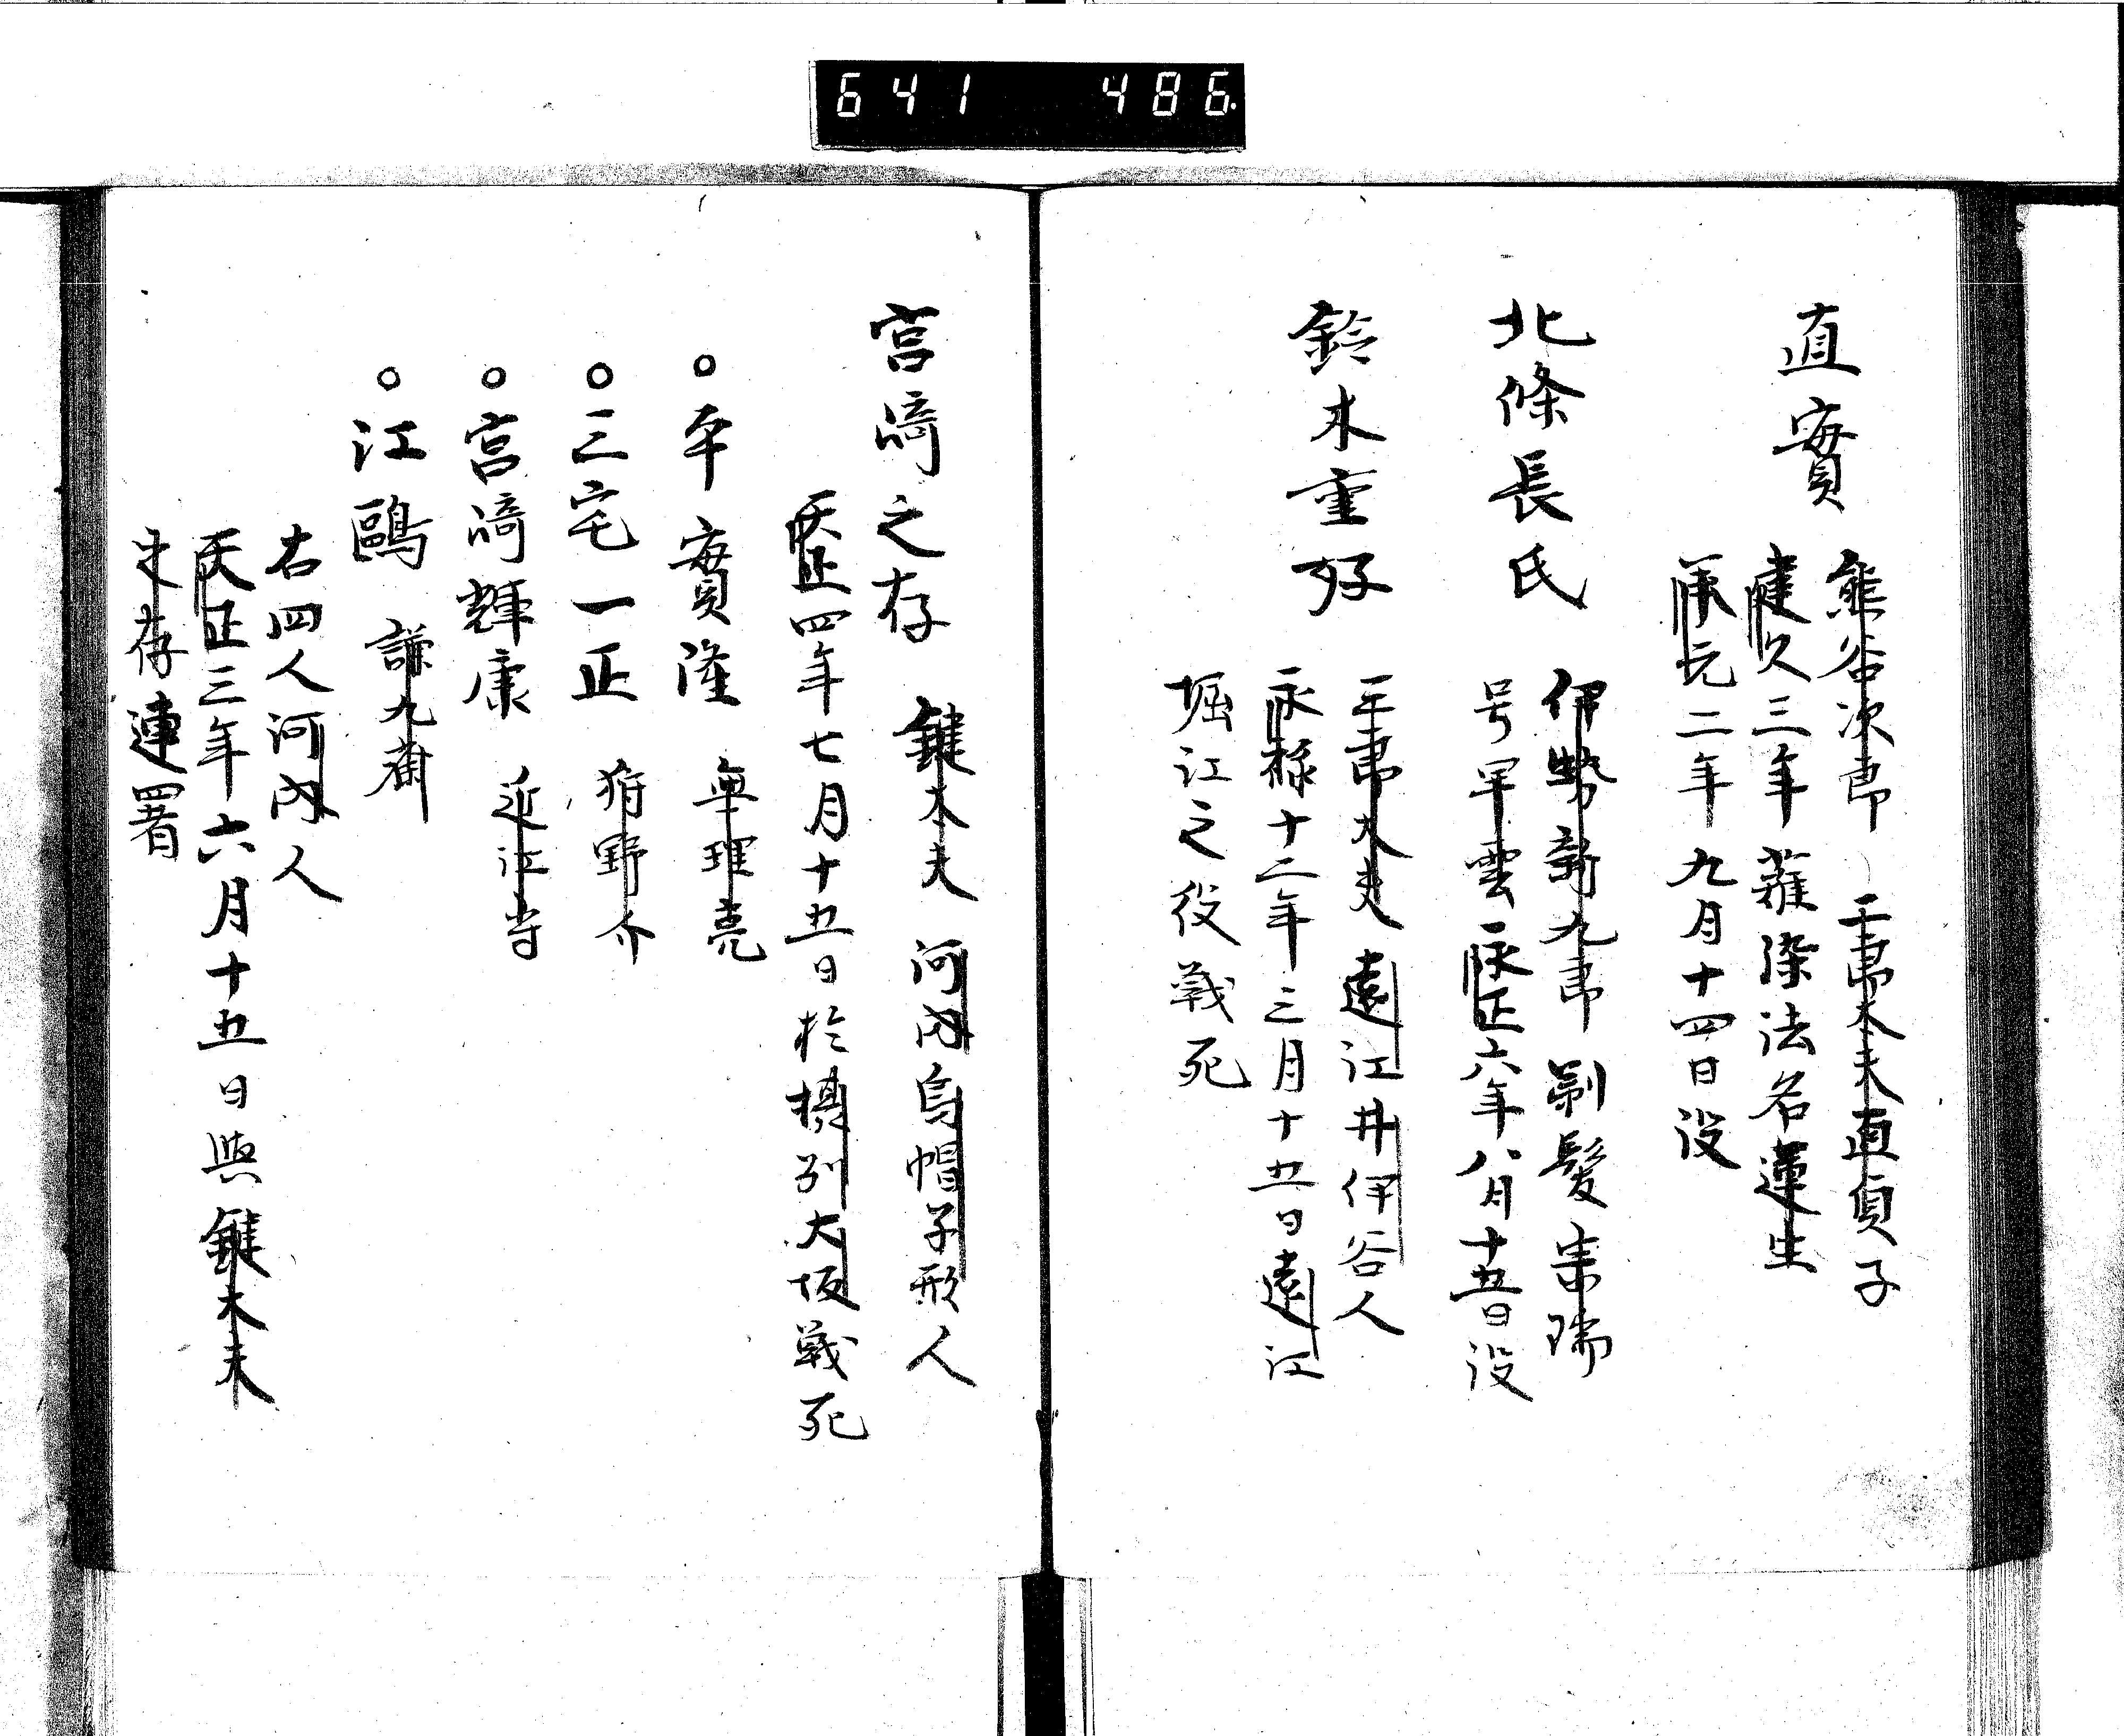 641 486.
直實
熊谷次郎 平太夫直貞子
建久三年薙染法名蓮生
承元二年九月十四日没
北條長氏
伊勢新九郎 剃髪宗瑞
号早雲 永正六年八月十五日没
鈴木重好
三郎太夫 遠江井伊谷人
永禄十二年三月十五日遠江
堀江之役戦死
宮﨑之存
鍵太夫 河内烏帽子形人
天正四年七月十五日於摂列大坂戦死
○平實隆 無理亮
○三宅一正 狩野介
○宮﨑輝康 近江守
○江鷗 謙九齋
右四人河内人
天正三年六月十五日與鍵太夫
之存連署